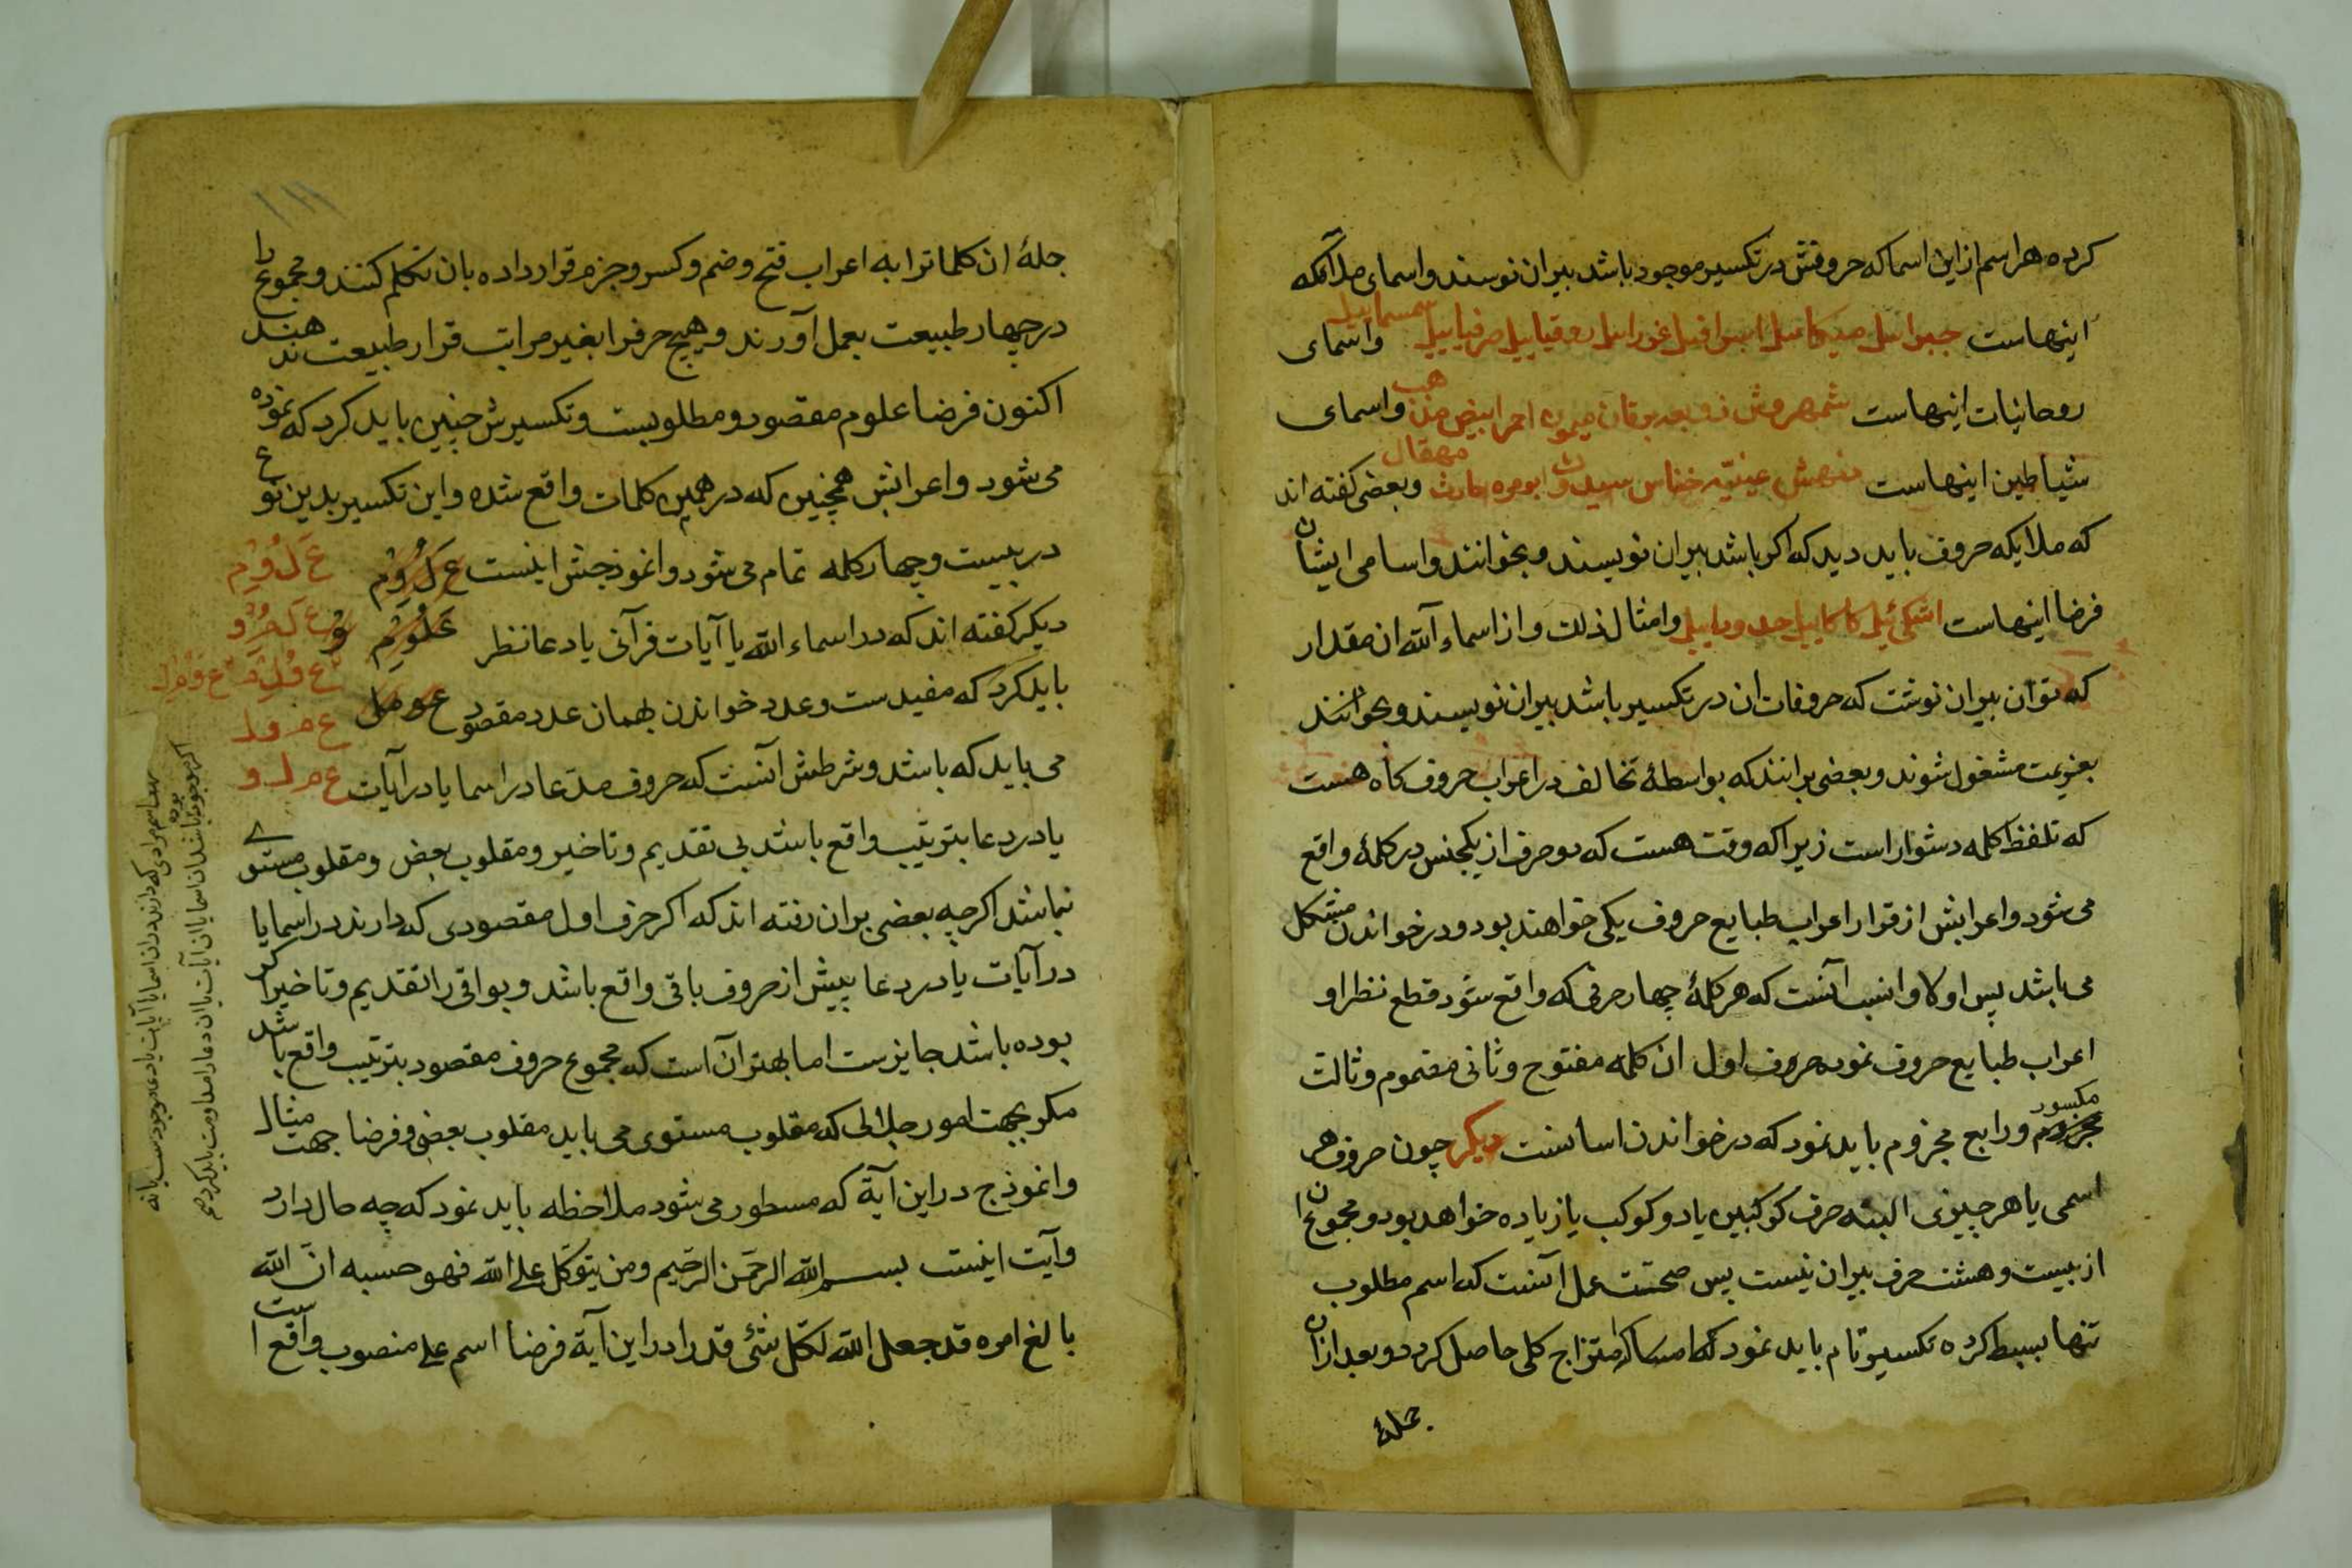 کرده هر اسم از این اسما که حروفش در تکسیر موجود باشد بیران نوسند و اسمای ملائکه
اینهاست جبرائیل میکائیل اسرافیل عزرائیل روقیاییل صرفیاییل سمسماییل و اسمای
روحانیات اینهاست شمهروش زوبعه برقان میمون احمر ابیض مذهب و اسمای
شیاطین اینهاست خناس ابومره حارث مهقال و بعضی کفته اند
که ملایکه حروف باید دید که اکر باشد بیران نویسند و بخوانند و اسامی ایشان
فرضا اینهاست و امثال ذلک و از اسماء الله ان مقدار
که توان بیران نوشت که حروفات ان در تکسیر باشد بیران نویسند و بخوانند
بعزیمت مشغول شوند و بعضی برانند که بواسطهٔ تخالف در اعراب حروف کاه هست
که تلفظ کلمه دشوار است زیرا که وقت هست که دو حرف از یکجنس در کلمهٔ واقع
می شود و اعرابش از قرار اعراب طبایع حروف یکی خواهند بود و در خواندن مشکل
می باشد پس اولا و انسب آنست که هر کلمهٔ چهار حرفی که واقع شود قطع نظر او
اعراب طبایع حروف نموده حروف اول ان کلمه مفتوح و ثانی مضموم و ثالث
مکسور
مجزوم و رابع مجزوم باید نمود که در خواندن اسانست دیکر چون حروف هر
اسمی یا هر چیزی البته حرف کوکبین یا دو کوکب یا زیاده خواهد بود و مجموع ان
از بیست و هشت حرف بیران نیست پس صحتت عمل آنست که اسم مطلوب
تنها بسیط کرده تکسیر تام باید نمود که امساک امتزاج کلی حاصل کردد و بعد ازان
جملهٔ
۱۱۱
جملهٔ ان کلماترا به اعراب فتح و ضم و کسر و جزم قرار داده بان تکلم کنند و مجموع را
در چهار طبیعت بعمل آورند و هیچ حرفرا بغیر مراتب قرار طبیعت ندهند
اکنون فرضا علوم مقصود و مطلوبست و تکسیرش چنین باید کرد که نموده
می شود و اعرابش همچنین که در همین کلمات واقع شده و این تکسیر بدین نوع
در بیست و چهار کلمه تمام می شود و انموذجش اینست عَ لُ وِ مْ عَ لُ وِ مْ
دیکر کفته اند که در اسماء الله یا آیات قرآنی یا دعا نظر عَلُوِمْ
باید کرد که مفید ست و عدد خواندن بهمان عدد مقصود ع و م ل
می باید که باشد و شرطش آنست که حروف مدعا در اسما یا در آیات ع م ل و
یا در دعا بترتیب واقع باشد بی تقدیم و تاخیر و مقلوب بعض و مقلوب مستوی
نباشد اکر چه بعضی بران رفته اند که اکر حرف اول مقصودی که دارند در اسما یا
در آیات یا در دعا پیش از حروف باقی واقع باشد و بواقی را تقدیم و تاخیر اکر
بوده باشد جایزست اما بهتر آن است که مجموع حروف مقصود بترتیب واقع باشد
مکر بجهت امور جلالی که مقلوب مستوی می باید مقلوب بعضی و فرضا جهت مثال
و انموذج در این آیة که مسطور می شود ملاحظه باید نمود که چه حال دارد
و آیت اینست بسم الله الرحمن الرحیم و من یتوکل علی الله فهو حسبه ان الله
بالغ امره قد جعل الله لکل شئ قدرا در این آیة فرضا اسم علی منصوب واقع است